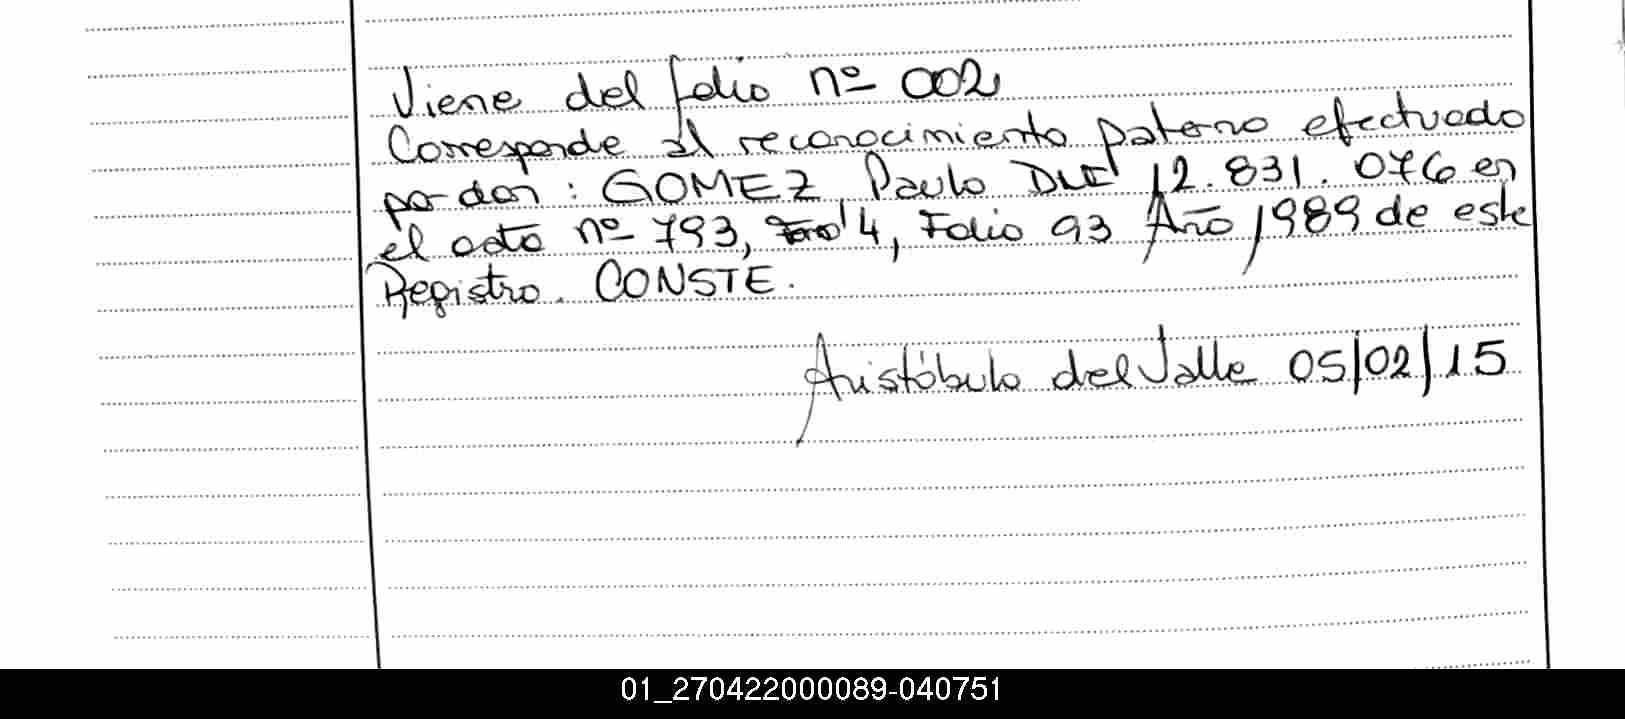 Viene del folio nº 002
Corresponde al reconocimiento paterno efectuado
por don: GOMEZ, Paulo DNI 12.831.076 en
el acta nº 793, Tomo 4, Folio 93 Año 1989 de este
Registro. CONSTE.
Aristóbulo del Valle 05/02/15
01_270422000089-040751